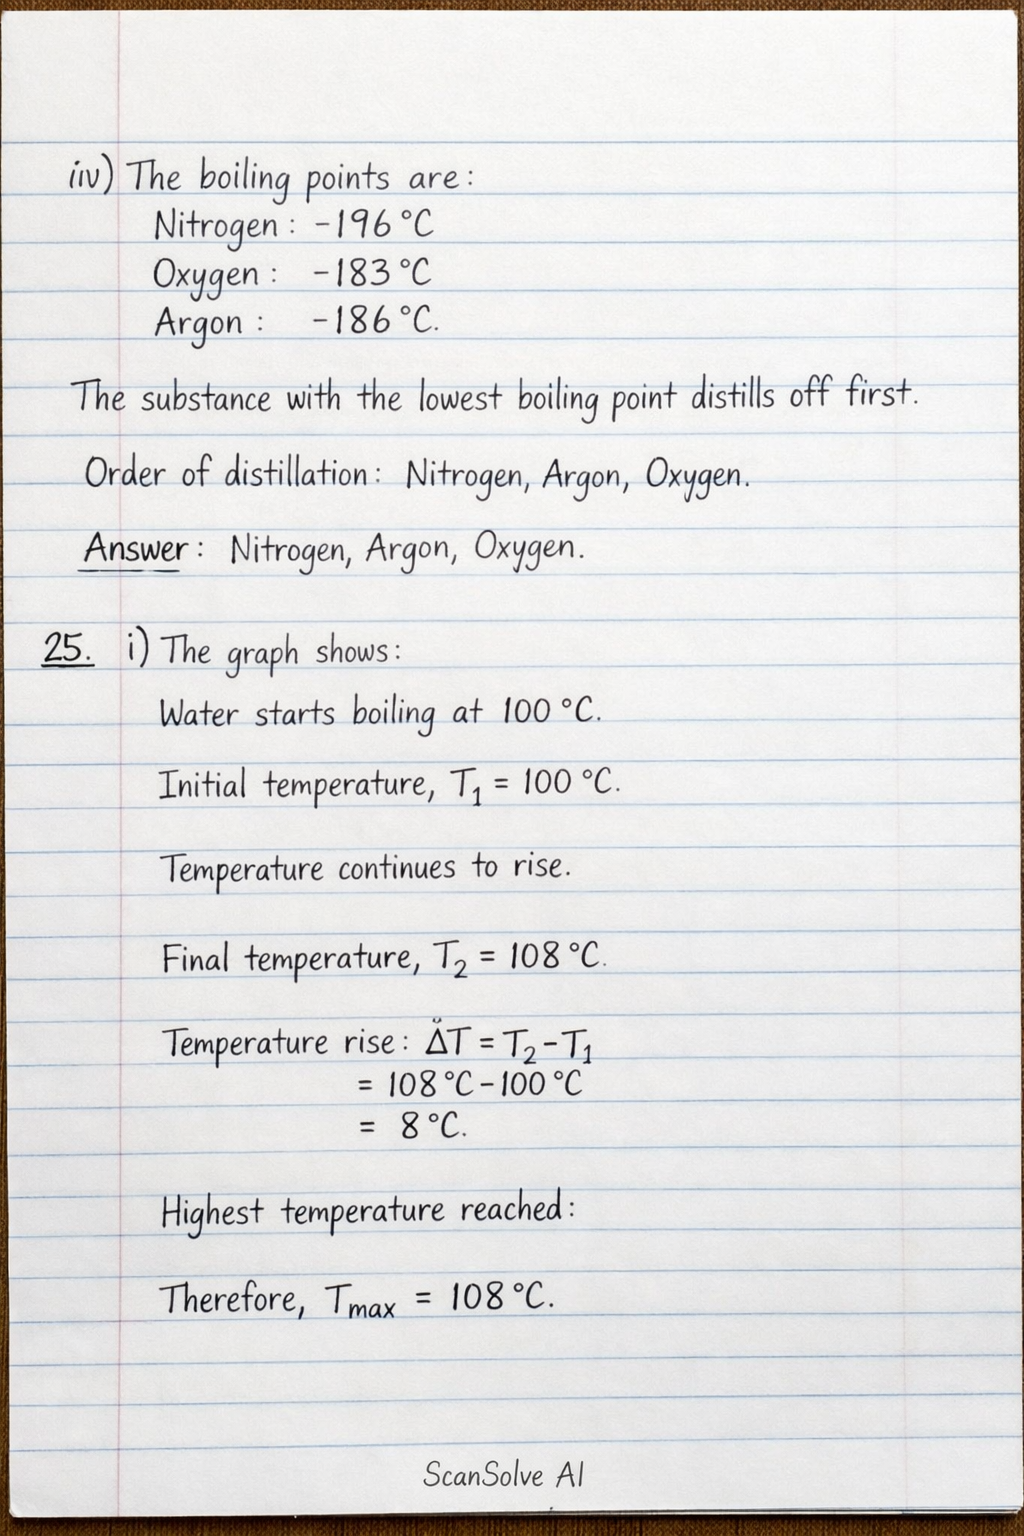 iiv) The boiling points are:
Nitrogen: -196 °C
Oxygen: -183 °C
Argon: -186 °C.
The substance with the lowest boiling point distills off first.
Order of distillation: Nitrogen, Argon, Oxygen.
Answer: Nitrogen, Argon, Oxygen.
25. i) The graph shows:
Water starts boiling at 100 °C.
Initial temperature, T₁ = 100 °C.
Temperature continues to rise.
Final temperature, T₂ = 108 °C.
Temperature rise: Δ̈T = T₂ - T₁
= 108 °C - 100 °C
= 8 °C.
Highest temperature reached:
Therefore, Tmax = 108 °C.
ScanSolve AI